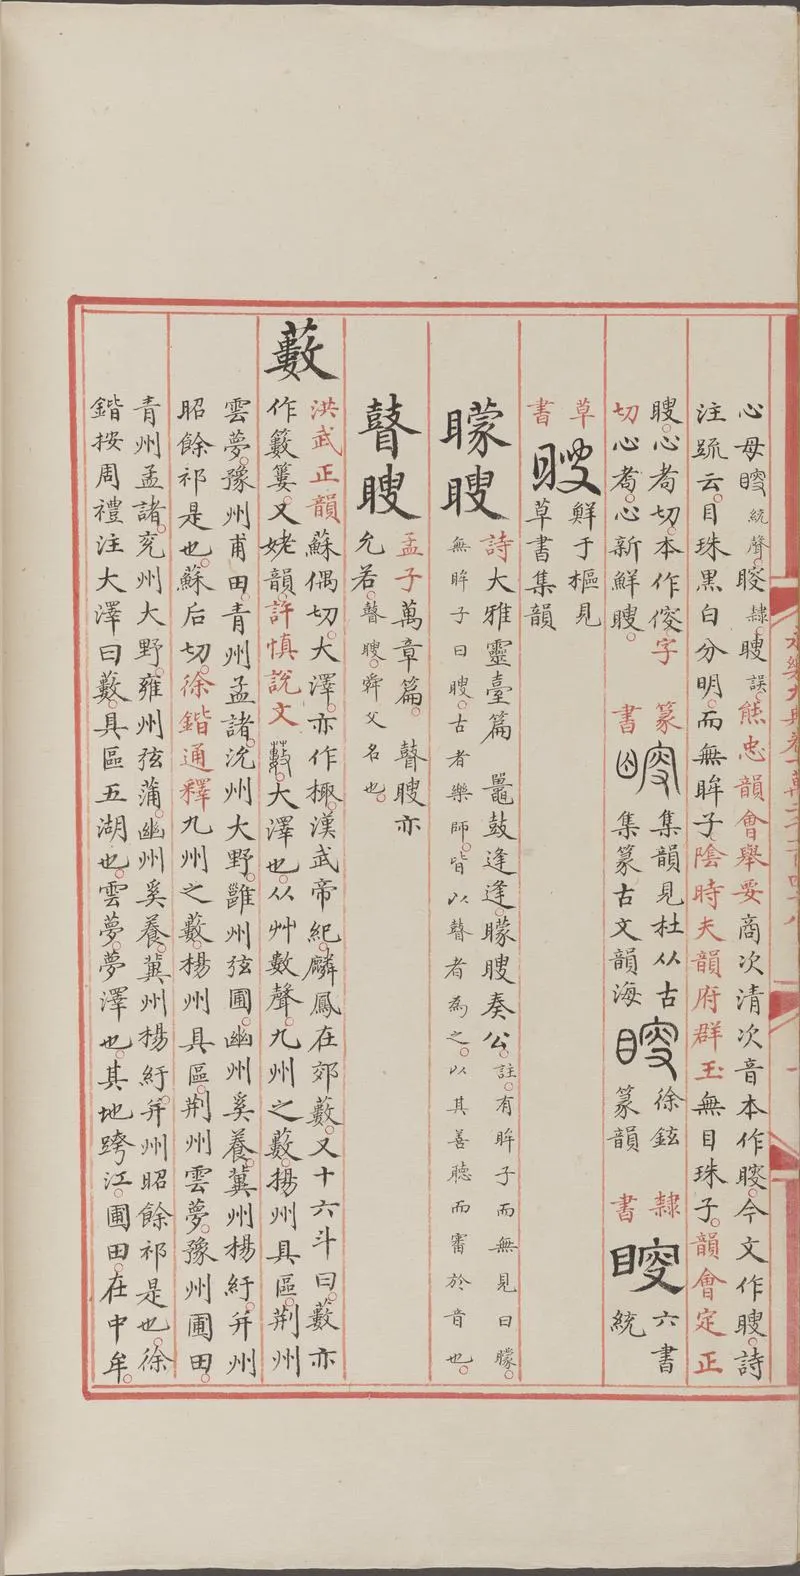 心母瞍統聲。䀶隸。瞍誤。熊忠韻會舉要商次清次音本作䀶。今文作瞍。詩
注疏云。目珠黑白分明。而無眸子。陰時夫韻府群玉無目珠子。韻會定正
瞍。心岑切。本作傁字
切心岑。心新鮮瞍。
篆書
集韻見杜从古
集篆古文韻海
徐鉉
篆韻
隸書
六書
統
草書
鮮于樞見
草書集韻
矇瞍
詩大雅靈臺篇 鼉鼓逢逢。矇瞍奏公。註。有眸子而無見曰矇。
無眸子曰瞍。古者樂師。皆以瞽者為之。以其善聽而審於音也。
瞽瞍
孟子萬章篇。瞽瞍亦
允若。瞽瞍。舜父名也。
藪
洪武正韻蘇偶切。大澤。亦作棷。漢武帝紀。麟鳳在郊藪。又十六斗曰。藪亦
作籔䉤。又姥韻。許慎說文藪。大澤也。从艸數聲。九州之藪。揚州具區。荆州
雲夢。豫州甫田。青州孟諸。沇州大野。雝州弦圃。幽州奚養。冀州楊紆。并州
昭餘祁是也。蘇后切。徐鍇通釋九州之藪。楊州具區。荆州雲夢。豫州圃田。
青州孟諸。兖州大野。雍州弦蒲。幽州奚養。冀州楊紆。并州昭餘祁是也。徐
鍇按周禮注大澤曰藪。具區五湖也。雲夢。夢澤也。其地跨江。圃田。在中牟。